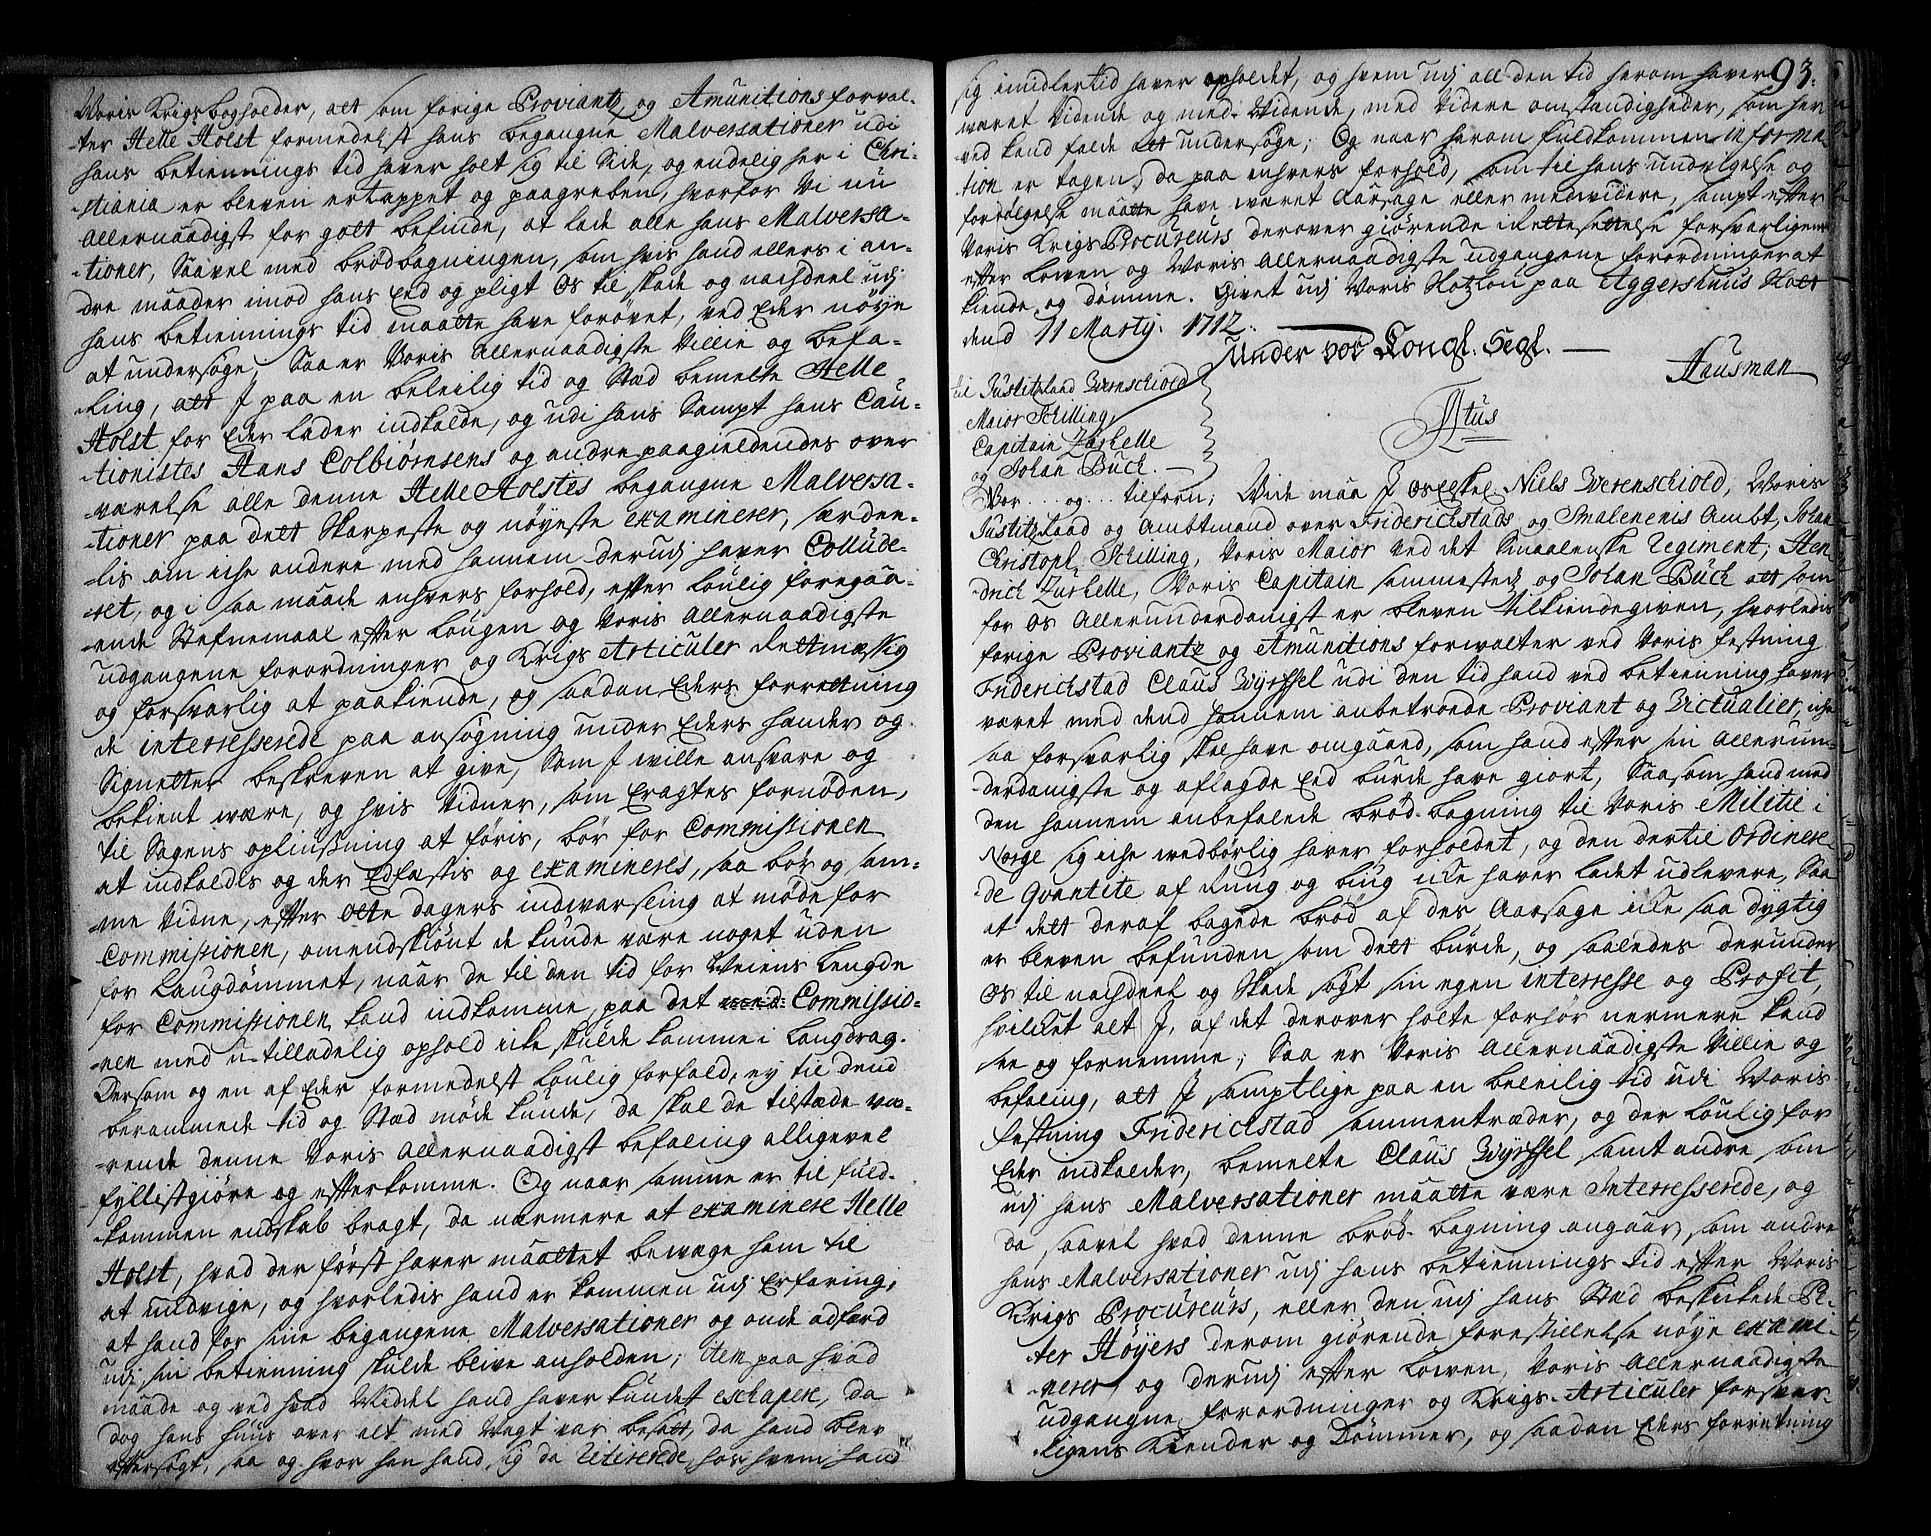 Woris Krigs bogholder, att som forige Proviantz og Amunitions forval-
-ter Helle Holst formedelst hans begangne Malversationer udi
hans betiennings tid haver holt sig til Side, og endelig her i Chri-
-stiania er bleven ertappet og paagreben, hvorfor Vi nu
Allernaadigst for gott befinde, at lade alle hans Malversa-
-tioner, Saavel med brødbagningen, som hvis hand ellers i an-
dre maader imod hans Eed og pligt Os til skade og nachdeel udj
hans betiennings tid maatte have forøvet, ved Eder nøye
at undersøge, Saa er Voris Allernaadigste Villie og befa-
-ling, att J paa en beleilig tid og Stæd bemelte Helle
Holst for Eder lader indkalde, og udi hans Sampt hans Cau-
-tionistes Hans Colbiørnsens og andre paagieldendes over
værelse alle denne Helle Holstes begangne Malversa-
-tioner paa dett Skarpeste og nøyeste examinerer, særden-
-lis om iche andere med hannem derudj haver Collude-
-ret, og i saa maade enhvers forhold, efter Loulig foregaa-
ende Stefnemaal efter Lougen og Voris Allernaadigste
udgangene forordninger og Krigs Articuler Rettmessig
og forsvarlig at paakiende, og saadan Eders forrettning
de interresserede paa ansøgning under Eders hænder og
Signetter beskreven at give, Som J wille ansvare og
bekient wære, og hvis Vidner, som Eragtes fornøden,
til Sagens oplinsning at føris, bør for Commissionen
at indkaldes og der Edfæstis og examineres, saa bør og sam-
-me Vidne, efter otte dagers indvarsling at møde for
Commissionen, omendskiønt de kunde være noget uden
for Laugdømmet, naar de til den tid for Veiens Lengde
for Commissionen kand indkomme, paa det med Commissio-
-nen med u-tilladelig ophold icke skulde komme i Langdrag.
Dersom og en af Eder formedelst Loulig forfald, ey til dend
berammede tid og Stæd møde kunde, da skal de tilstæde væ-
-rende denne Voris Allernaadigst befaling alligevel
fyllistgiøre og efterkomme. Og naar samme er til fuld-
kommen endskab bragt, da nærmere at examinere Helle
Holst, hvad der først haver maattet bewæge ham til
at undvige, og hvorledis hand er kommen udj Erfaring,
at hand for sine begangene Malversationer og onde adfærd
udj sin betienning skulde blive anholden; Item paa hvad
maade og ved hvad Middel hand haver kundet eschapere, da
dog hans huus over alt med Vagt var besatt, da hand blev
eftersøgt, saa og hvor hen hand sig da Retirerede, hos hvem hand
93.
sig imidlertid haver opholdet, og hvem udj all den tid herom haver
wæret Vidende og med-Vidende, med Videre omstændigheder, som her
ved kand falde att undersøge; Og naar herom fuldkommen informa-
-tion er tagen, da paa enhvers forhold, som til hans undvigelse og
fordølgelse maatte have wæret Aarsage eller medvidere, sampt efter
Voris Krigs Procureurs derover giørende irettesettelse forsvarligen
efter Lowen og Woris Allernaadigste udgangene forordninger at
kiende og dømme. Givet udj Woris Slotzlou paa Aggershuus Slott
dend 11 Martij. 1712.
Under vor Kongl. Segl.
Hausman
til Justitzraad Werenschiold
Maior Schilling
Capitain Zurhelle
og Johan Büch.
Ftus
Vor... og... tilforn; Wide maa J Os Elskel. Niels Werenschiold, Voris
Justitzraad og Ambtmand over Friderichstads og Smalenenis Ambt, Johan
Christoph Schilling, Voris Maior ved det Smaalenske Regiment, Hen-
drich Zurhelle, Voris Capitain sammestedz og Johan Büch att som
for Os Allerunderdanigst er bleven tilkiendegiven, hvorledis
forige Proviantz og Amunitions forwalter ved Voris festning
Friderichstad Claus Wyrffel udi den tid hand ved betienning haver
været med dend hannem anbetroede Proviant og Victualier, iche
saa forsvarlig skal have omgaaed, som hand efter sin Allerun-
-derdanigste og aflagde Eed burde have giort, Saasom hand med
den hannem anbefalede brød-bagning til Voris Militie i
Norge sig iche wedbørlig haver forholdet, og den dertil Ordinere-
de Qvantite af Ruug og biug icke haver ladet udlevere, Saa
at dett deraf bagede brød af den Aarsage icke saa dygtig
er bleven befunden som dett burde, og saaledes derunder
Os til nachdeel og Skade søgt sin egen interresse og Profit,
hvilcket alt J, af det derover holte forhør nermere kand
see og fornemme; Saa er Voris Allernaadigste Villie og
befaling, att J samptlige paa en beleilig tid udi Woris
festning Friderichstad sammentræder, og der Loulig for
Eder indkalder, bemelte Claus Wyrffel samt andre som
udj hans Malversationer maatte være Interresserede, og
da saavel hvad denne brød-bagning angaar, som andre
hans Malversationer udj hans betiennings tid efter Woris
Krigs Procureurs, eller den udj hans Stæd beskickede Pe-
-ter Høyers derom giørende forestillelse nøye exami-
-nerer, og derudj efter Lowen, Voris Allernaadigste
udgangne forordninger og Krigs-Articuler forsvar-
-ligens Kiender og Dømmer, og saadan Eders forretning